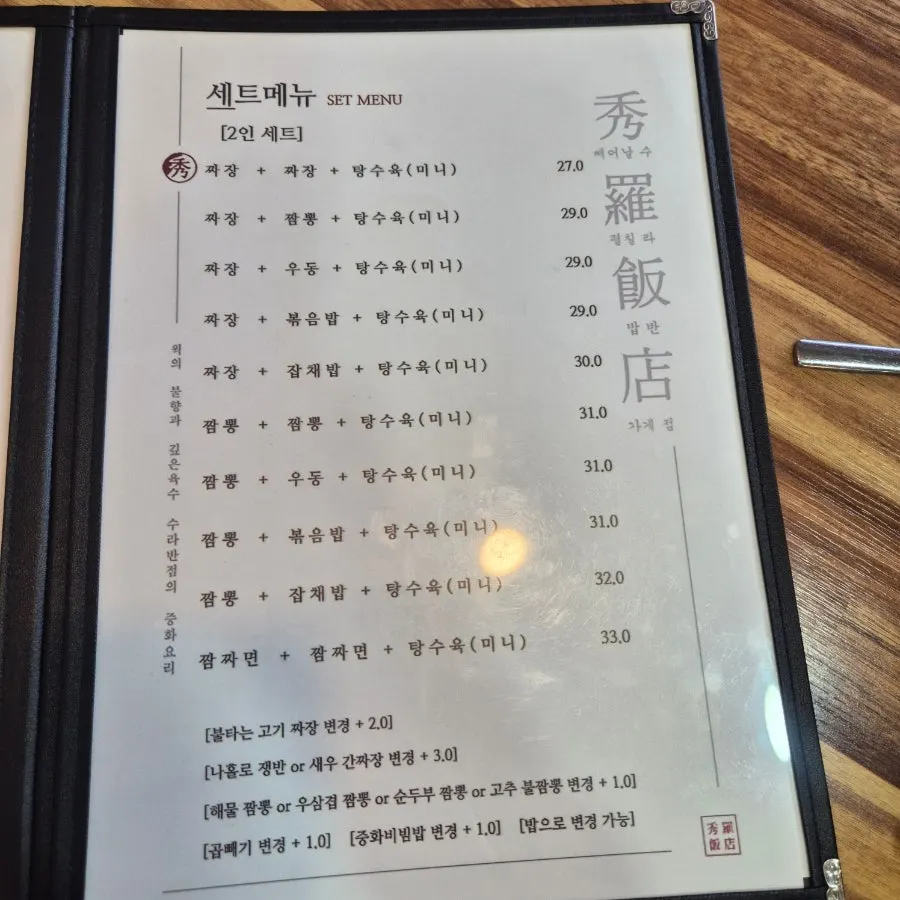 세트메뉴 SET MENU
[2인 세트]
秀
짜장 + 짜장 + 탕수육(미니) 27.0
짜장 + 짬뽕 + 탕수육(미니) 29.0
짜장 + 우동 + 탕수육(미니) 29.0
짜장 + 볶음밥 + 탕수육(미니) 29.0
짜장 + 잡채밥 + 탕수육(미니) 30.0
짬뽕 + 짬뽕 + 탕수육(미니) 31.0
짬뽕 + 우동 + 탕수육(미니) 31.0
짬뽕 + 볶음밥 + 탕수육(미니) 31.0
짬뽕 + 잡채밥 + 탕수육(미니) 32.0
짬짜면 + 짬짜면 + 탕수육(미니) 33.0
[불타는 고기 짜장 변경 + 2.0]
[나홀로 쟁반 or 새우 간짜장 변경 + 3.0]
[해물 짬뽕 or 우삼겹 짬뽕 or 순두부 짬뽕 or 고추 불짬뽕 변경 + 1.0]
[곱빼기 변경 + 1.0] [중화비빔밥 변경 + 1.0] [밥으로 변경 가능]
웍의 불향과 깊은육수 수라반점의 중화요리
秀
빼어날 수
羅
펼칠 라
飯
밥 반
店
가게 점
秀羅
飯店